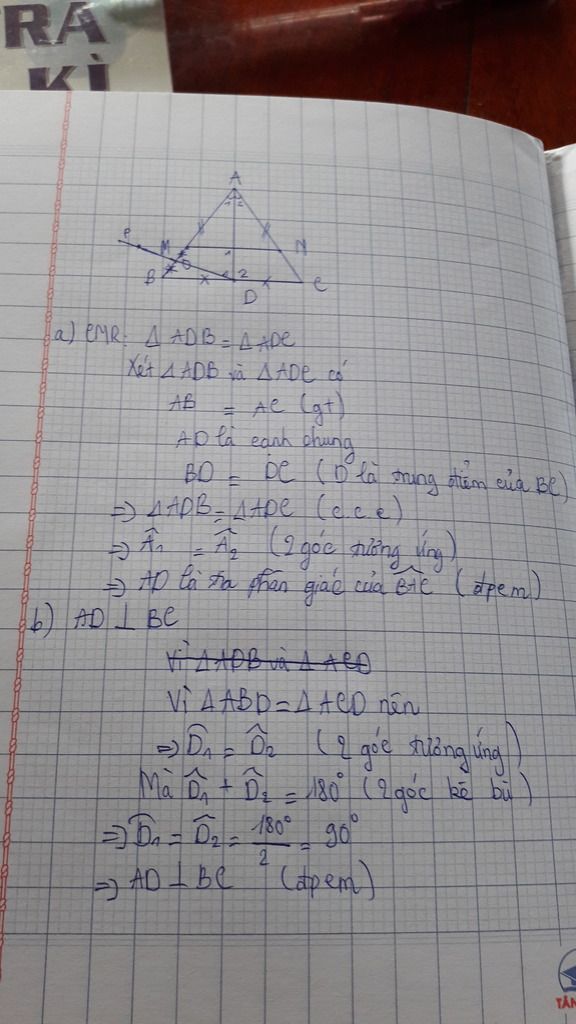 RA
KÌ
A
1 2
P
M
N
1
O
1 2
B
D
C
a) CMR: △ADB = △ADC
Xét △ADB và △ADC có
AB = AC (gt)
AD là cạnh chung
BD = DC (D là trung điểm của BC)
=> △ADB = △ADC (c.c.c)
=> Â₁ = Â₂ (2 góc tương ứng)
=> AD là tia phân giác của BÂC (đpcm)
b) AD ⊥ BC
Vì △ADB và △ACD
Vì △ABD = △ACD nên
=> D̂₁ = D̂₂ (2 góc tương ứng)
Mà D̂₁ + D̂₂ = 180° (2 góc kề bù)
=> D̂₁ = D̂₂ = 180°/2 = 90°
=> AD ⊥ BC (đpcm)
TÂN